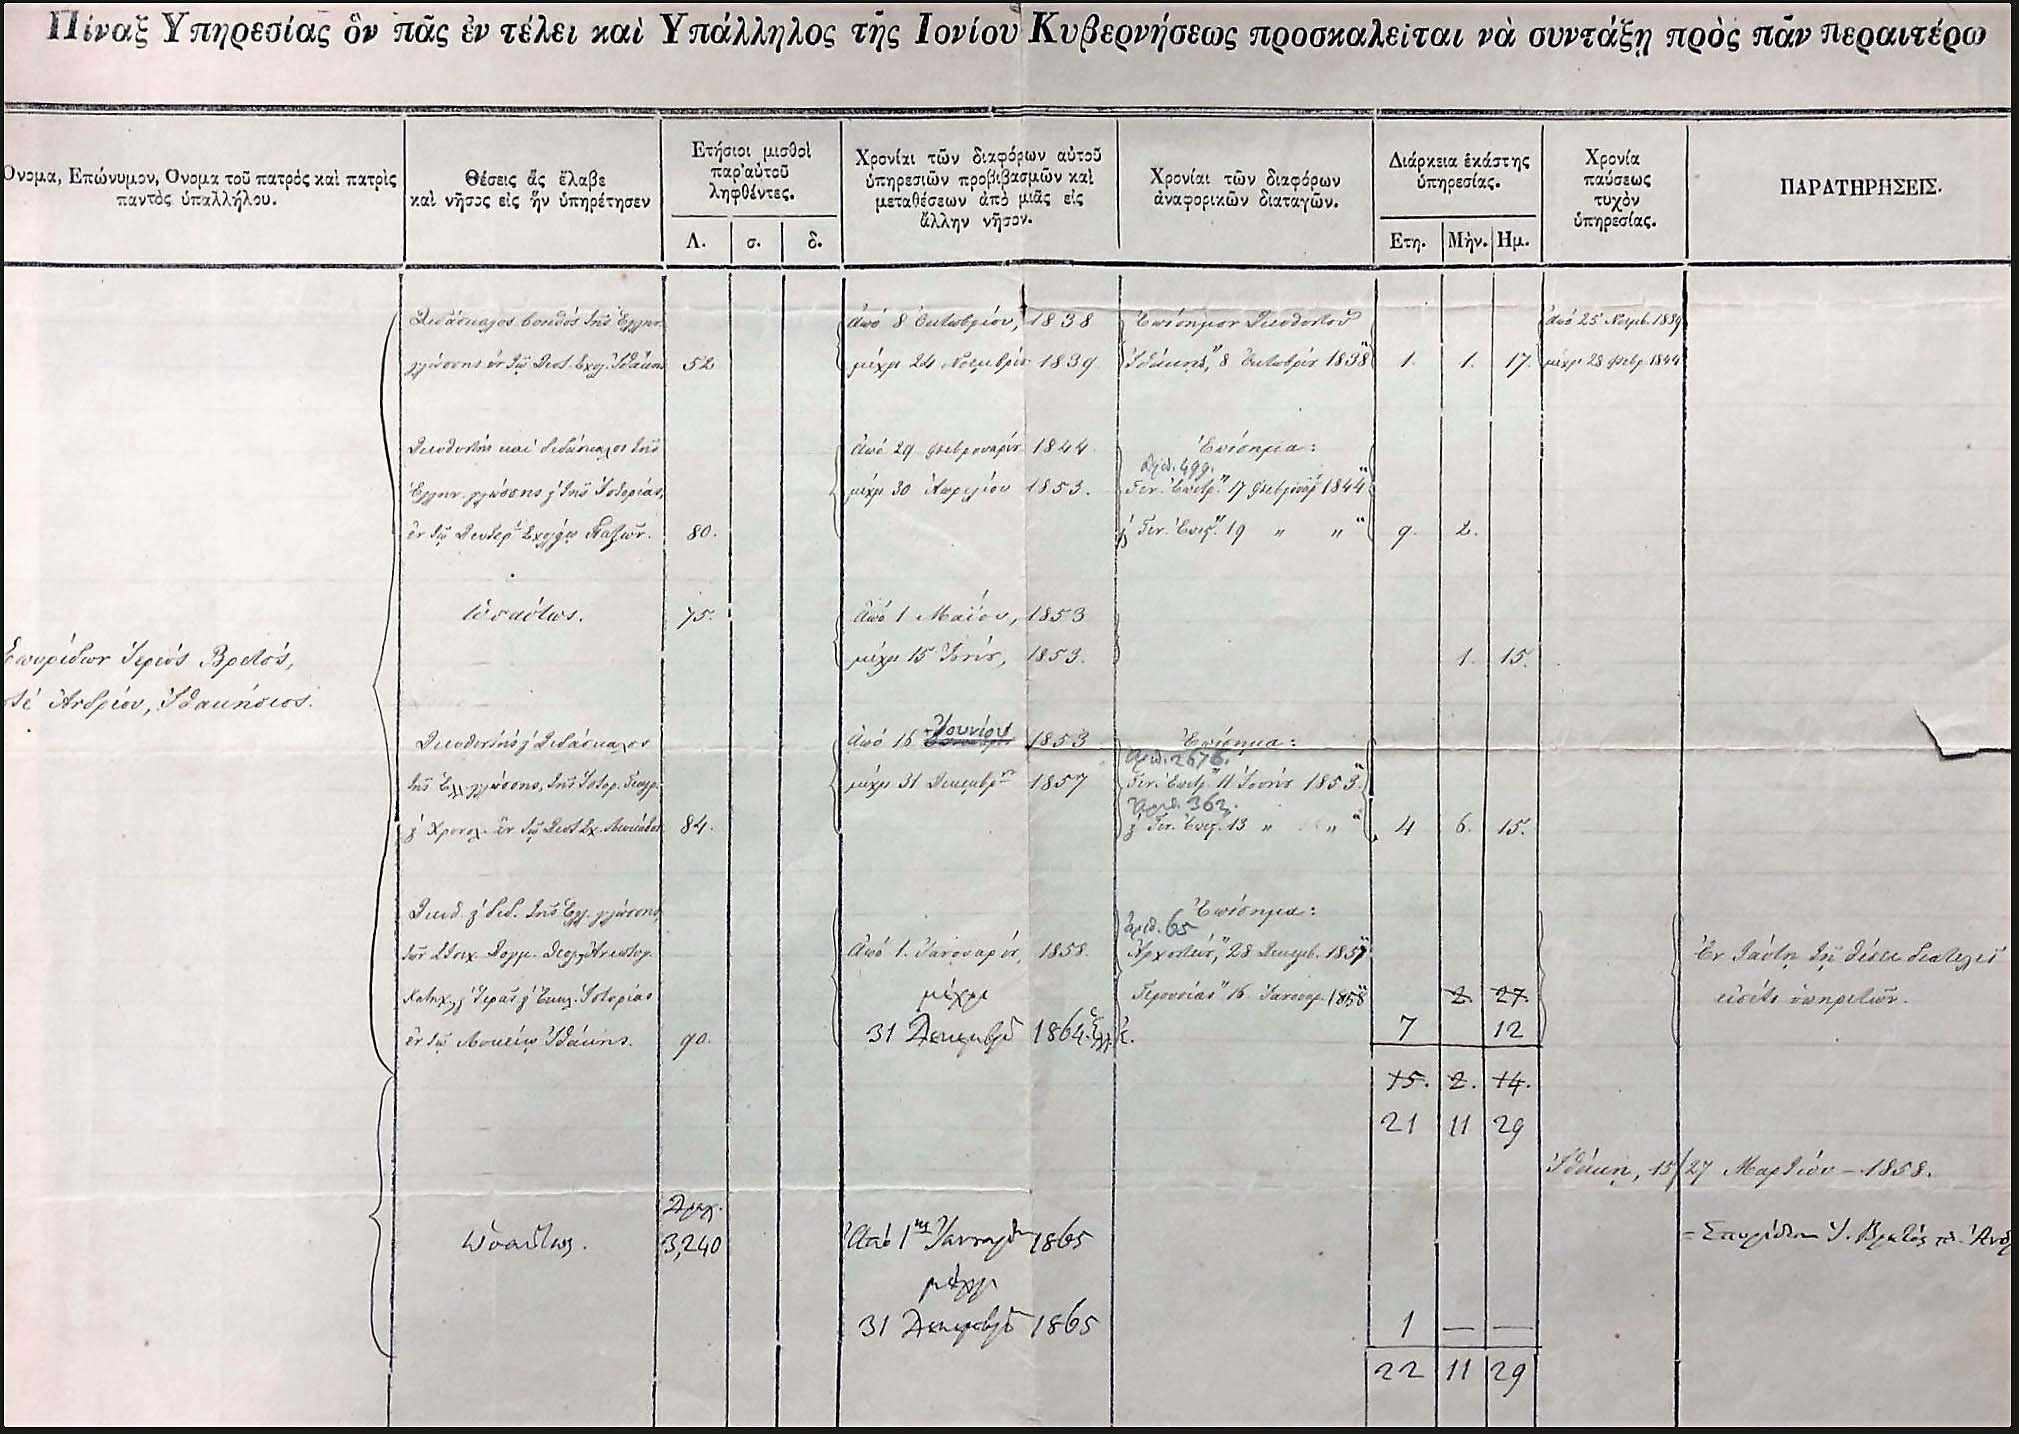 Πίναξ Υπηρεσίας ὃν πᾶς ἐν τέλει καὶ Υπάλληλος τῆς Ιονίου Κυβερνήσεως προσκαλεῖται νὰ συντάξῃ πρὸς πᾶν περαιτέρω
Ονομα, Επώνυμον, Ονομα τοῦ πατρός καὶ πατρὶς
παντὸς ὑπαλλήλου.
Θέσεις ἃς ἔλαβε
καὶ νῆσος εἰς ἣν ὑπηρέτησεν
Ετήσιοι μισθοὶ
παρ'αὐτοῦ
ληφθέντες.
Λ. σ. δ.
Χρονίαι τῶν διαφόρων αὐτοῦ
ὑπηρεσιῶν προβιβασμῶν καὶ
μεταθέσεων ἀπὸ μιᾶς εἰς
ἄλλην νῆσον.
Χρονίαι τῶν διαφόρων
ἀναφορικῶν διαταγῶν.
Διάρκεια ἑκάστης
ὑπηρεσίας.
Ετη. Μὴν. Ημ.
Χρονία
παύσεως
τυχὸν
ὑπηρεσίας.
ΠΑΡΑΤΗΡΗΣΕΙΣ.
Σπυρίδων Ἱερεὺς Βρετός,
ποτέ Ἀνδρέου, Ἰθακήσιος.
Διδάσκαλος βοηθός τῆς Ἑλλην.
γλώσσης ἐν τῷ Δευτ. Σχολ. Ἰθάκης 52
Ἀπό 8 Ὀκτωβρίου, 1838 Ἐπίσημον Διευθυντοῦ Ἀπό 25 Νοεμβ. 1839
μέχρι 24 Νοεμβρίου 1839 Ἰθάκης, 8 Ὀκτωβρίου 1838 1. 1. 17. μέχρι 28 Φεβρ. 1844
Διευθυντής καί διδάσκαλος τῆς Ἀπό 29 Φεβρουαρίου 1844. Ἐπίσημα:
Ἀριθ. 499.
Ἑλλην. γλώσσης & τῆς Ἱστορίας, μέχρι 30 Ἀπριλίου 1853. Γεν. Ἐπιτρ. 17 Φεβρουαρ 1844
ἐν τῷ Δευτερ. Σχολείῳ Παξῶν. 80. & Γεν. Ἐπιθ. 19 " " 9. 2.
Ὡσαύτως. 75. Ἀπό 1 Μαΐου, 1853
μέχρι 15 Ἰουνίου, 1853. 1. 15.
Διευθυντής & Διδάσκαλος Ἀπό 16 Ἰουνίου 1853 Ἐπίσημα:
Ἀριθ. 2676.
τῆς Ἑλλ. γλώσσης, τῆς Ἱστορ. Γεωγρ. μέχρι 31 Δεκεμβρ 1857 Γεν. Ἐπιτρ. 11 Ἰουνίου 1853
Ἀριθ. 362.
& Χρονολ. ἐν τῷ Δευτ. Σχ. Λευκάδος 84. & Γεν. Ἐπιθ. 13 " " 4 6. 15.
Διευθ. & διδ. τῆς Ἑλλ. γλώσσης, Ἐπίσημα:
ἀριθ. 65
Ἀπό 1. Ἰανουαρίου, 1858. 28 Δεκεμβ. 1857 Ἐν ταύτῃ τῇ θέσει διατελεῖ
Κατηχ. & Ἱερᾶς & Ἐκκλ. Ἱστορίας μέχρι Γερουσίας 16. Ἰανουαρ. 1858 2. 27. εἰσέτι ὑπηρετῶν.
ἐν τῷ Λυκείῳ Ἰθάκης. 90. 31 Δεκεμβρίου 1864 7 12
15. 2. 14.
21 11 29
Ἰθάκη, 15/27 Μαρτίου – 1858.
Δραχ.
Ὡσαύτως. 3,240 Ἀπό 1ης Ἰανουαρίου 1865 – Σπυρίδων Ἰ. Βρετός τοῦ Ἀνδ
μέχρι
31 Δεκεμβρίου 1865 1 — —
22 11 29